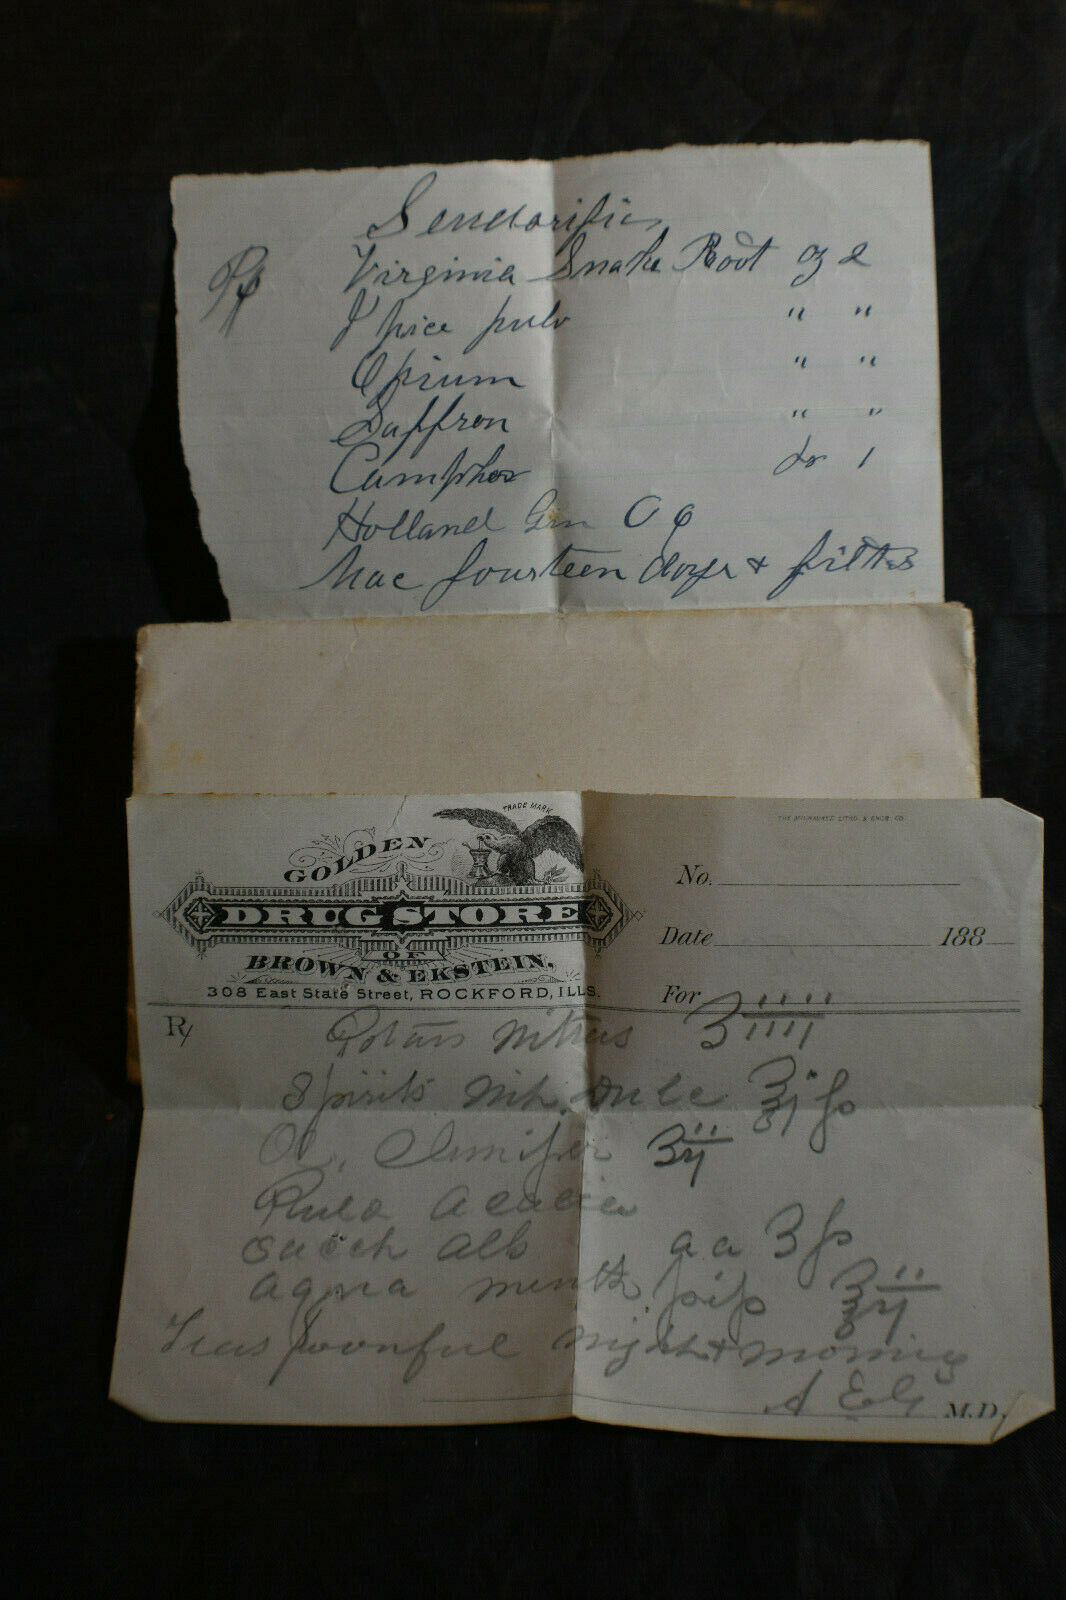 Rx
Virginia Snake Root oz 2
Ipice pulv " "
Opium " "
Saffron " "
Camphor dr 1
Holland Gin O
Mac fourteen days & filter
TRADE MARK
THE MILWAUKEE LITHO. & ENGR. CO.
GOLDEN
DRUG STORE
OF
BROWN & EKSTEIN,
308 East State Street, ROCKFORD, ILLS.
No.
Date 188
For
Rx
Potass Nitras
Spirits Nit. Dulc
Ol. Junifer
Pulv Acacia
Sacch Alb aa
aqua menth pip
Teaspoonful Night & Morning
M.D.